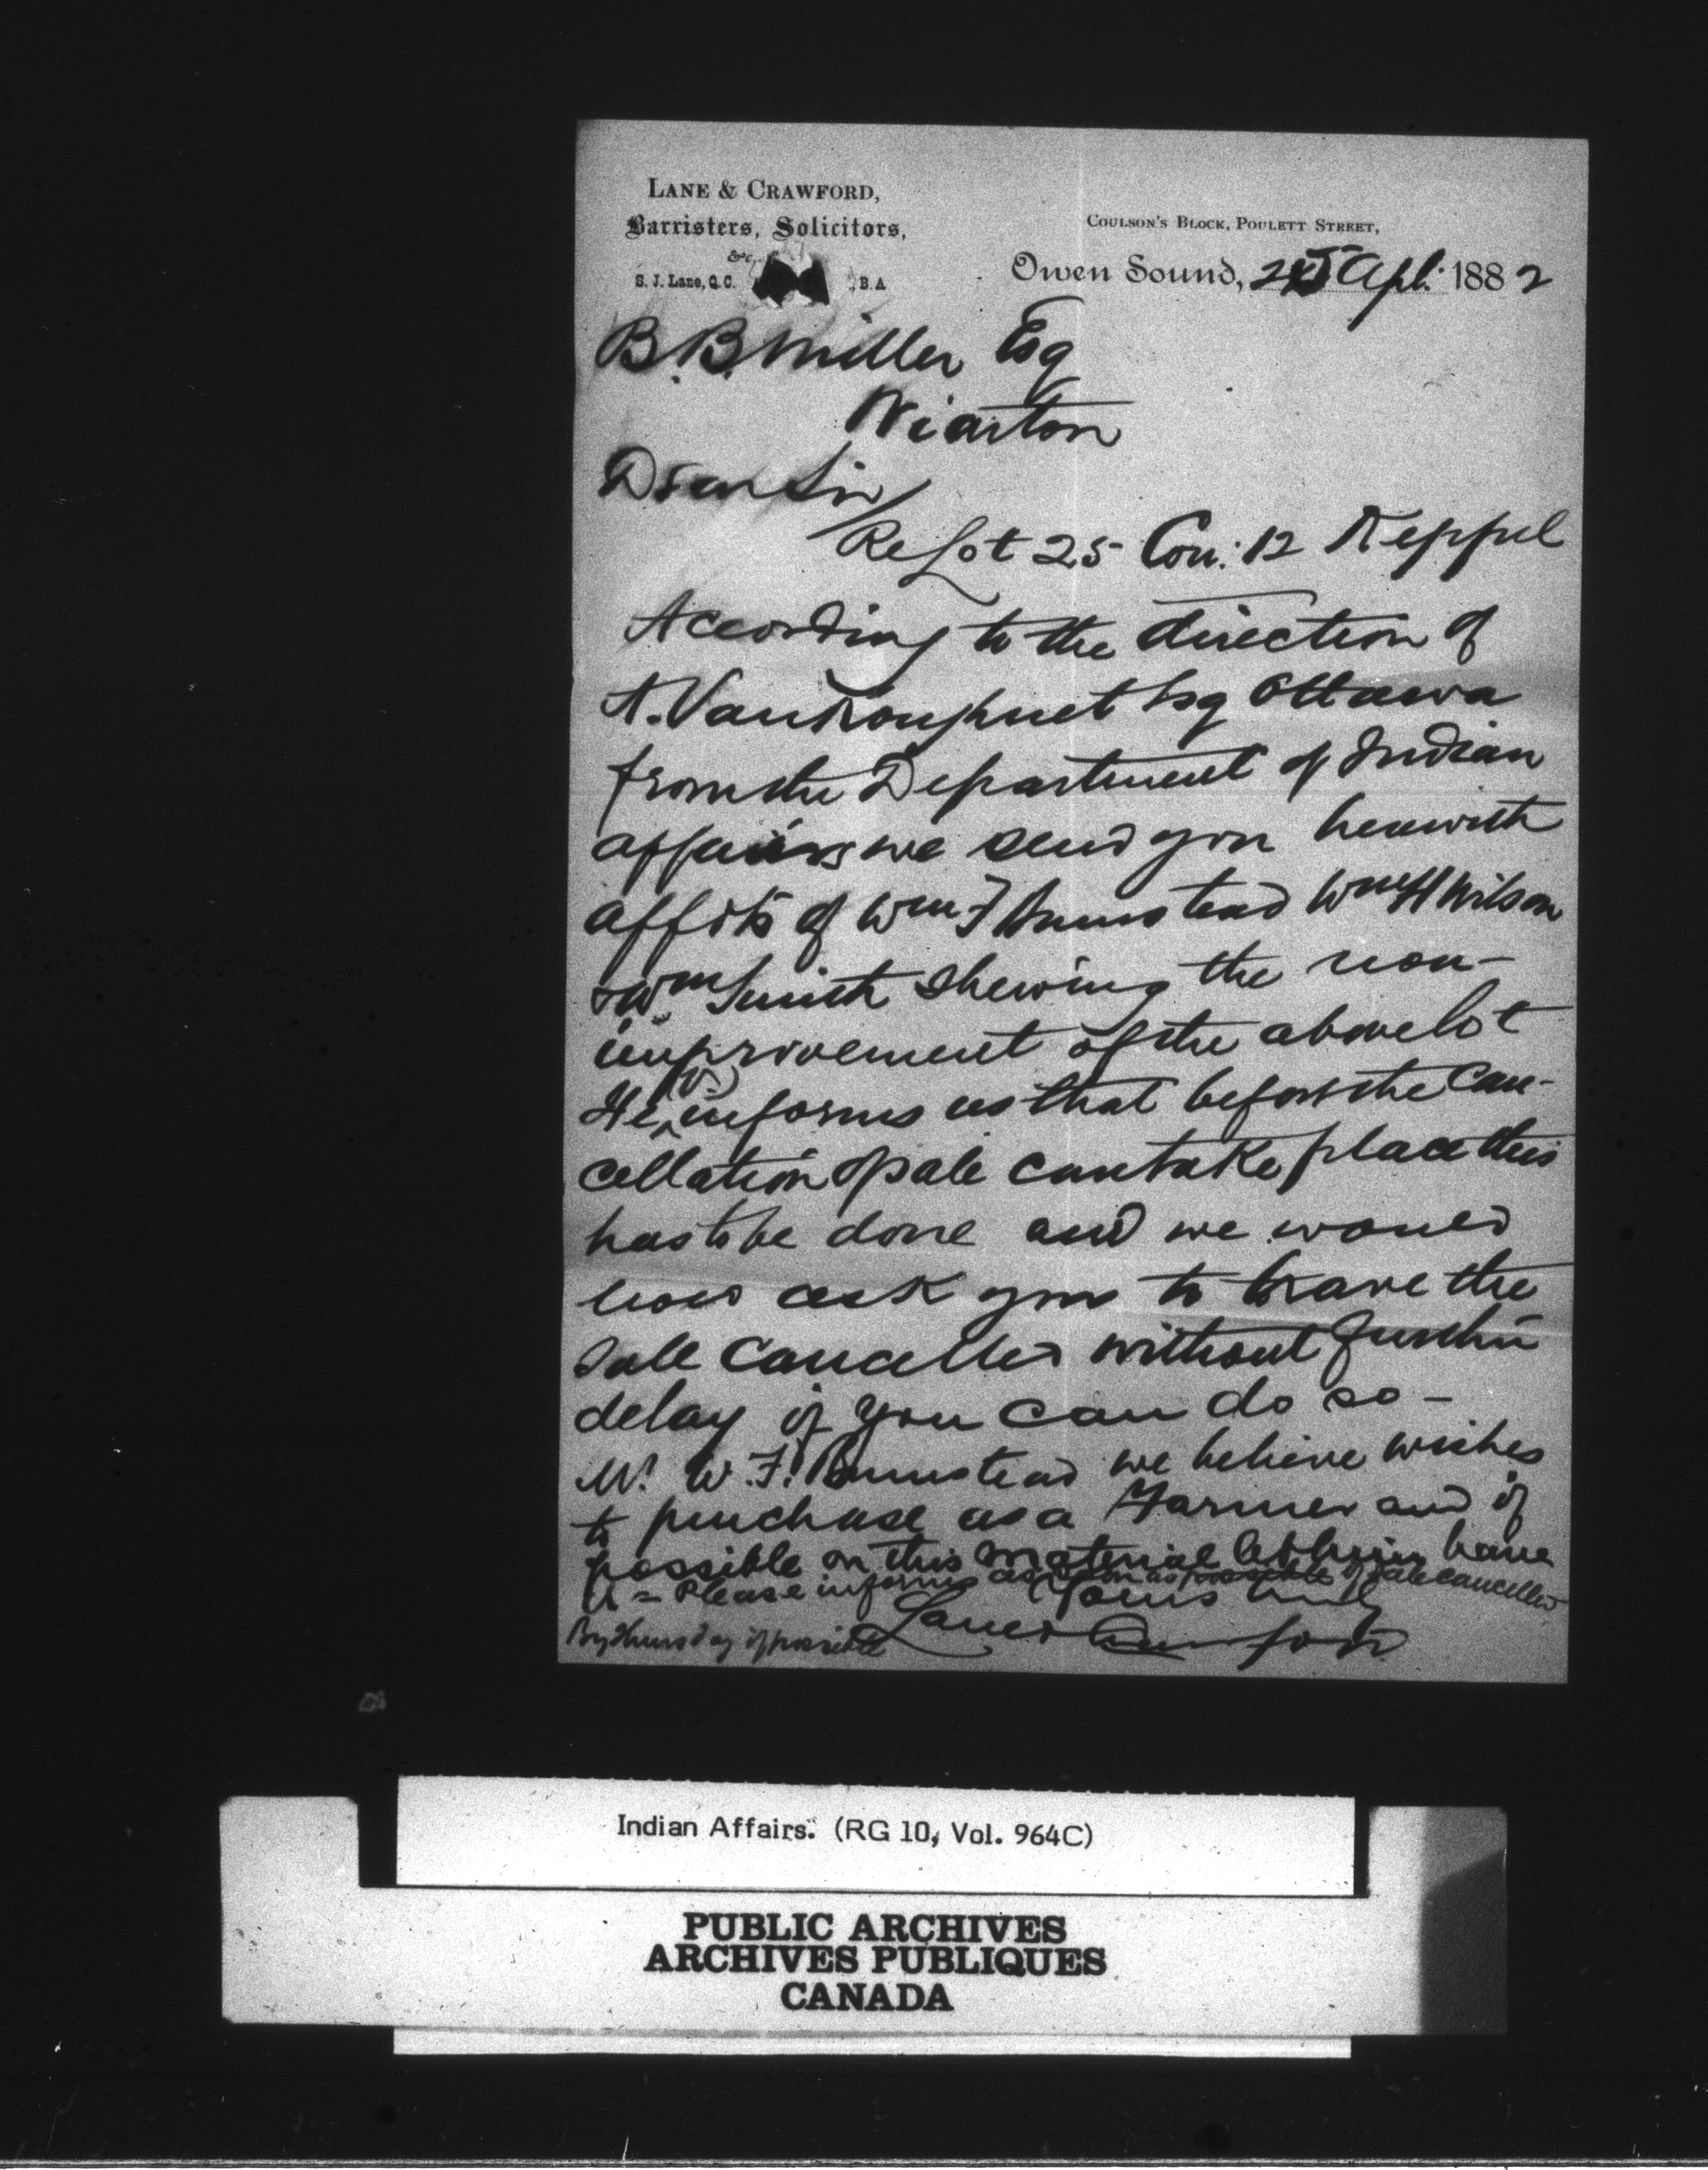 LANE & CRAWFORD,
Barristers, Solicitors,
&c.
S. J. Lane, Q.C. B.A
COULSON'S BLOCK, POULETT STREET,
Owen Sound, 25 Apl: 1882
B.B. Miller Esq
Wiarton
Dear Sir/
Re Lot 25 Con: 12 Keppel
According to the direction of
A. Vankoughnet Esq Ottawa
from the Department of Indian
affairs we send you herewith
affits of Wm F Bumstead Wm H Wilson
& Wm Smith shewing the non-
improvement of the above lot
He, (V) informs us that before the can-
cellation of sale can take place this
has to be done and we would
now ask you to have the
sale cancelled without further
delay if you can do so -
Mr. W. F. Bumstead we believe wishes
to purchase as a Farmer and if
possible on this material let him have
it = Please inform us as soon as possible if sale cancelled
Yours truly
Lane & Crawford
By Thursday if possible
Indian Affairs. (RG 10, Vol. 964C)
PUBLIC ARCHIVES
ARCHIVES PUBLIQUES
CANADA